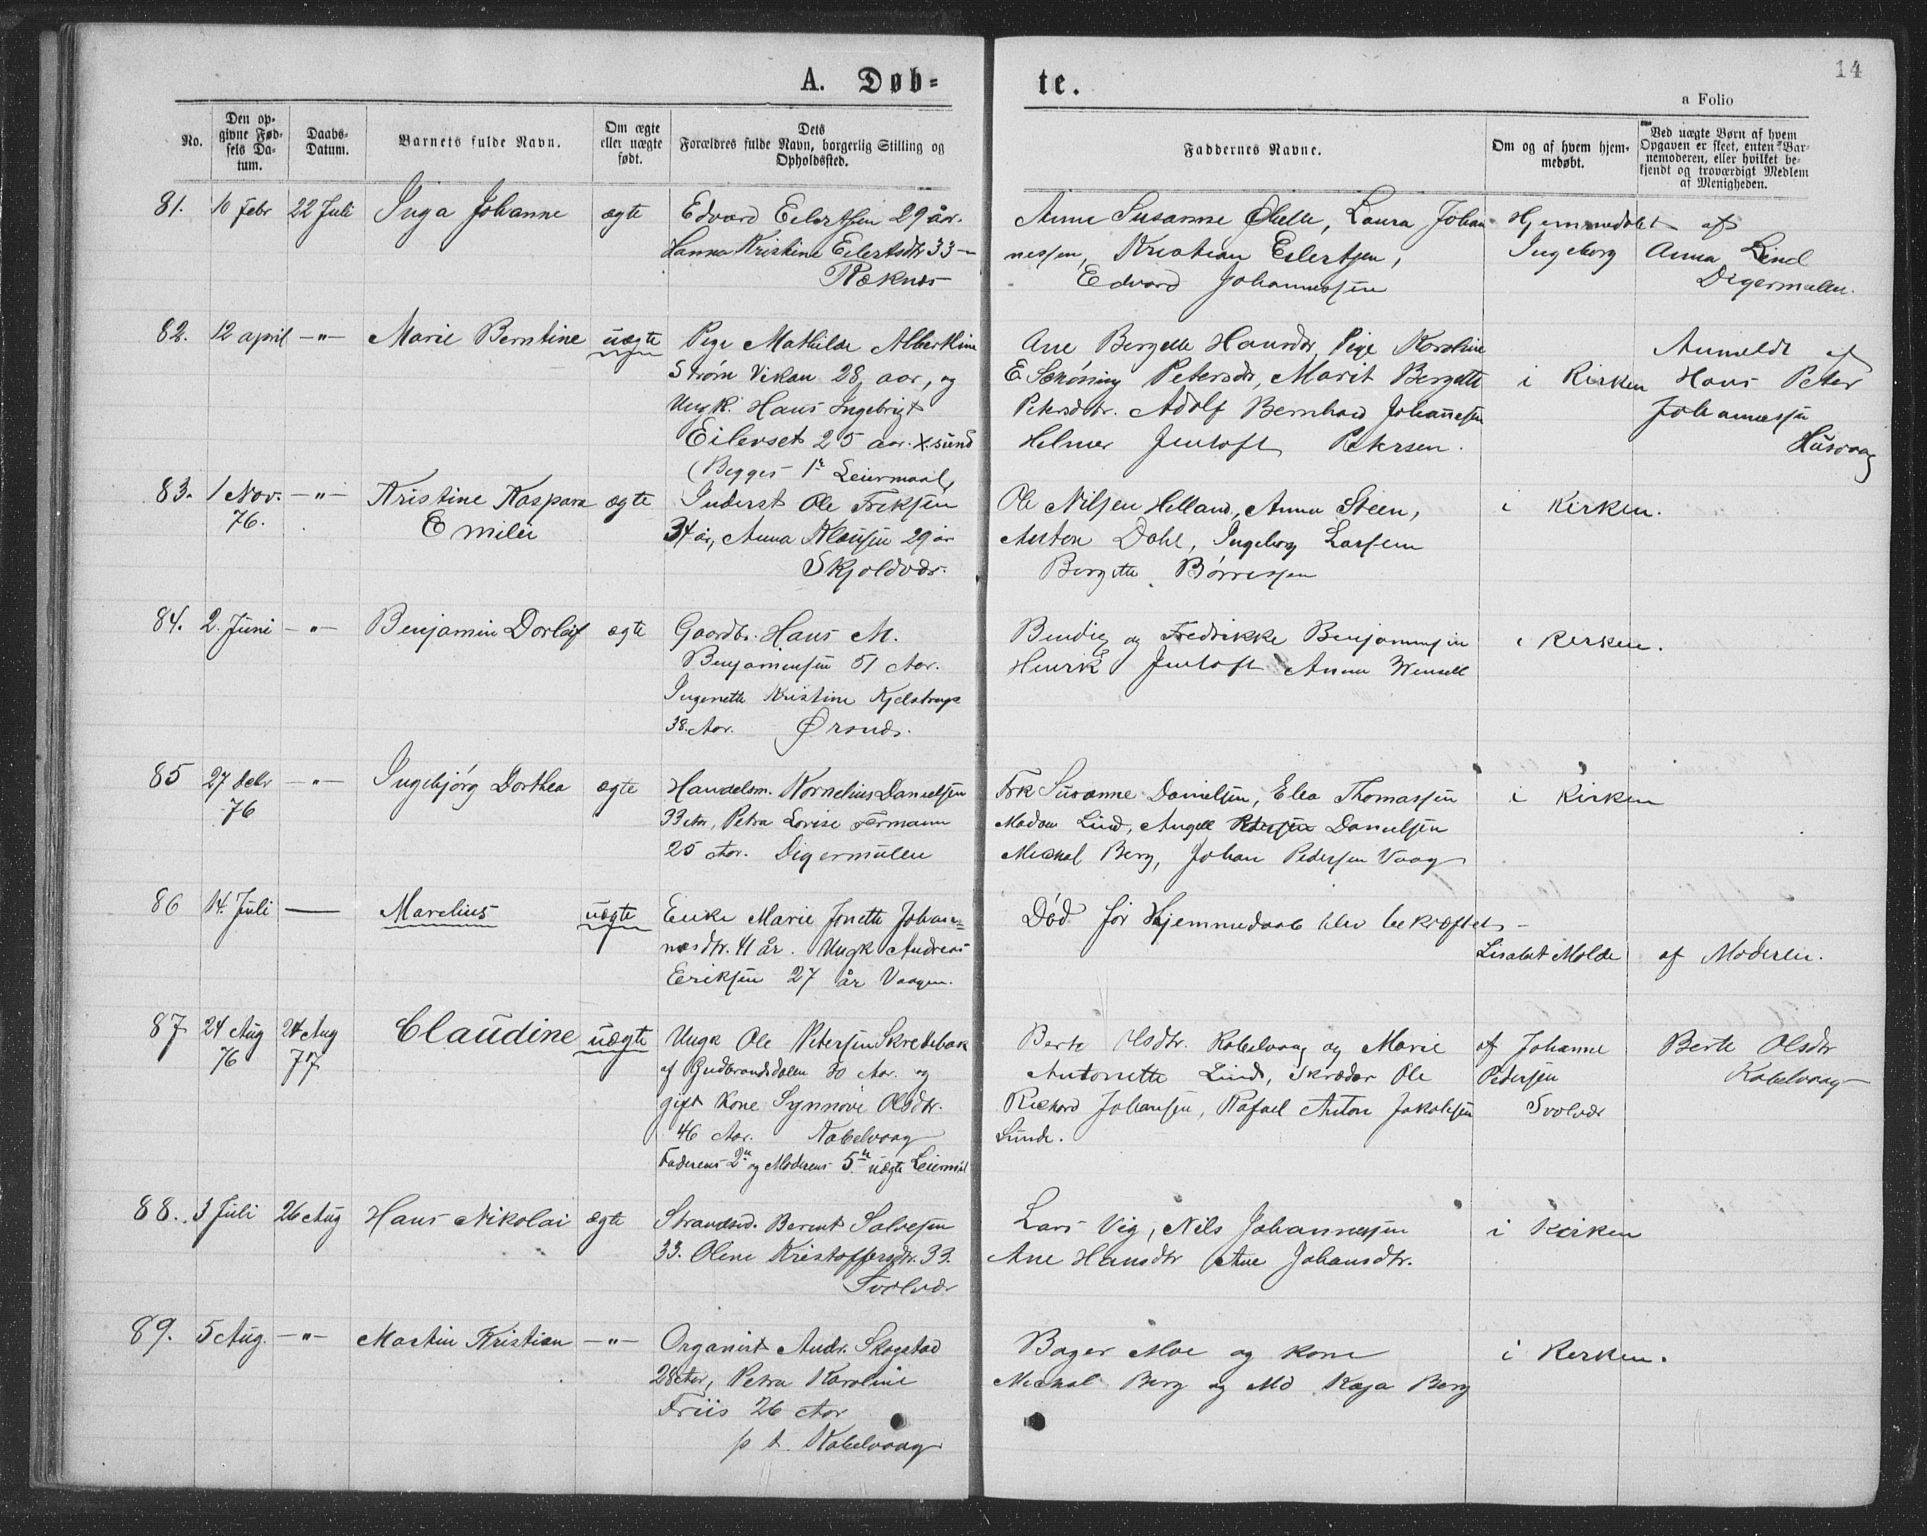 14
A. Døb-
te.
a Folio
No.
Den op-
givne Fød-
sels Da-
tum.
Daabs-
Datum.
Barnets fulde Navn.
Om ægte
eller uægte
født.
Dets
Forældres fulde Navn, borgerlig Stilling og
Opholdssted.
Faddernes Navne.
Om og af hvem hjem-
medøbt.
Ved uægte Børn af hvem
Opgaven er skeet, enten Bar-
nemoderen, eller hvilket be-
kjendt og troværdigt Medlem
af Menigheden.
81. 10 Febr 22 Juli Inga Johanne ægte Edvard Eilertsen 29 år.
Hanna Kristine Eilertsdtr 33 -
Ræknes
Anne Susanne, Laura Johan
nessen, Kristian Eilertsen,
Edvard Johannessen
Hjemmedøbt af
Ingeborg Anna Lind
Digermulen.
82. 12 april -"- Marie Berntine uægte Pige Mathilde Alberthine
Strøm Vikan 28 aar, og
Ungk. Hans Ingebrigt
Eilevset 25 aar. X.sund
(Begges 1ste Leiermaal)
Ane Bergette Hansdtr, Pige Karoline
E Schøning Petersdtr, Marit Bergette
Petersdtr. Adolf Bernhard Johannesen
Helmer Jentoft Petersen.
i Kirken
Anmeldt af
Hans Peter
Johannessen
Husvaag
83. 1 Nov. -"- Kristine Kaspara ægte Inderst Ole Eriksen
76.
Emilie
34 år, Anna Klausen 29 år
Skjoldvær.
Ole Nilsen Helland, Anna Steen,
Anton Dahl, Ingeborg Larsen
Bergette Børresen
i Kirken.
84. 2. Juni -"- Benjamin Dorleif ægte Gaardbr. Hans M.
Benjaminsen 51 Aar.
Ingenette Kristine Kjelstrup
38. Aar. Ørsnes.
Bendig og Fredrikke Benjaminsen
Henrik Jentoft Anna Wensell
i Kirken.
85 27 Debr -"- Ingebjørg Dorthea ægte Handelsm. Kornelius Danielsen
76
33 Aar, Petra Lovise Formann
25 Aar. Digermulen
Frk Susanne Danielsen, Elea Thomassen
Madam Lind, Angell Pedersen Danielsen
Mickal Berg, Johan Pedersen Vaag
i Kirken
86 14. Juli — Marelius uægte Enke Marie Jonette Johan-
nesdtr. 41 år. Ungk Andreas
Eriksen 27 år Vaagen.
Død før Hjemmedaab blev bekræftet -
Lisabet Molde af Moderen.
87. 24 Aug 24 Aug Claudine uægte Ungk Ole Petersen Skredebak
76 77
af Gudbrandsdalen 30 Aar. og
gift Kone Synnøve Olsdtr.
46 Aar. Kabelvaag
Faderens 2det og Moderens 5te uægte Leiermål
Berte Olsdtr. Kabelvaag og Marie
Antonette Lind, Skræder Ole
Rickard Johansen, Rafael Anton Jakobsen
Lunde.
af Johanne
Pedersen
Svolvær
Berte Olsdtr
Kabelvaag
88. 3 Juli 26 Aug Hans Nikolai ægte Strandsid. Bernt Salvesen
33. Oline Kristoffersdtr. 33.
Svolvær
Lars Vig, Nils Johannessen
Ane Hansdtr Ane Johansdtr.
i Kirken
89. 5 Aug. -"- Martin Kristian -"- Organist Andr. Skogstad
28 Aar, Petra Karoline
Friis 26 Aar
p t. Kabelvaag
Bager Moe og kone
Mickal Berg og Md Kaja Berg
i Kirken.